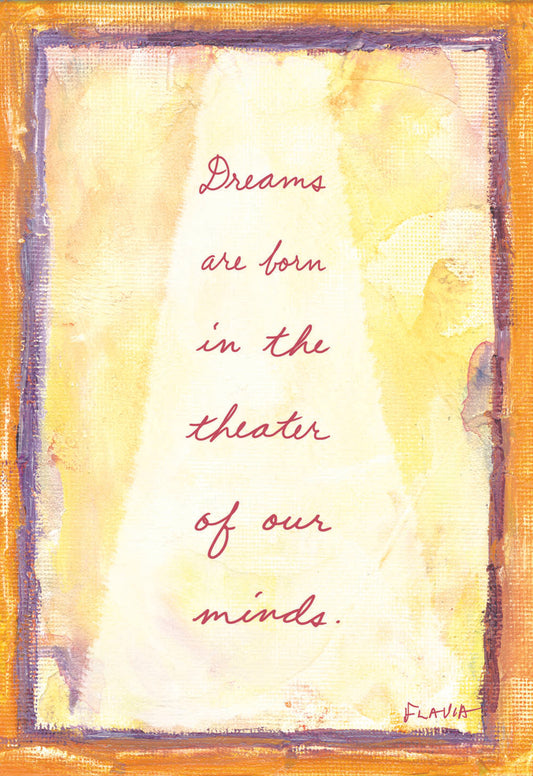 Dreams
are born
in the
theater
of our
minds.
FLAVIA